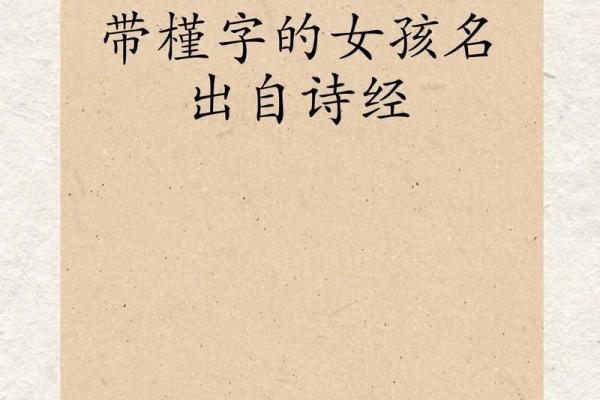 带槿字的女孩名
出自诗经